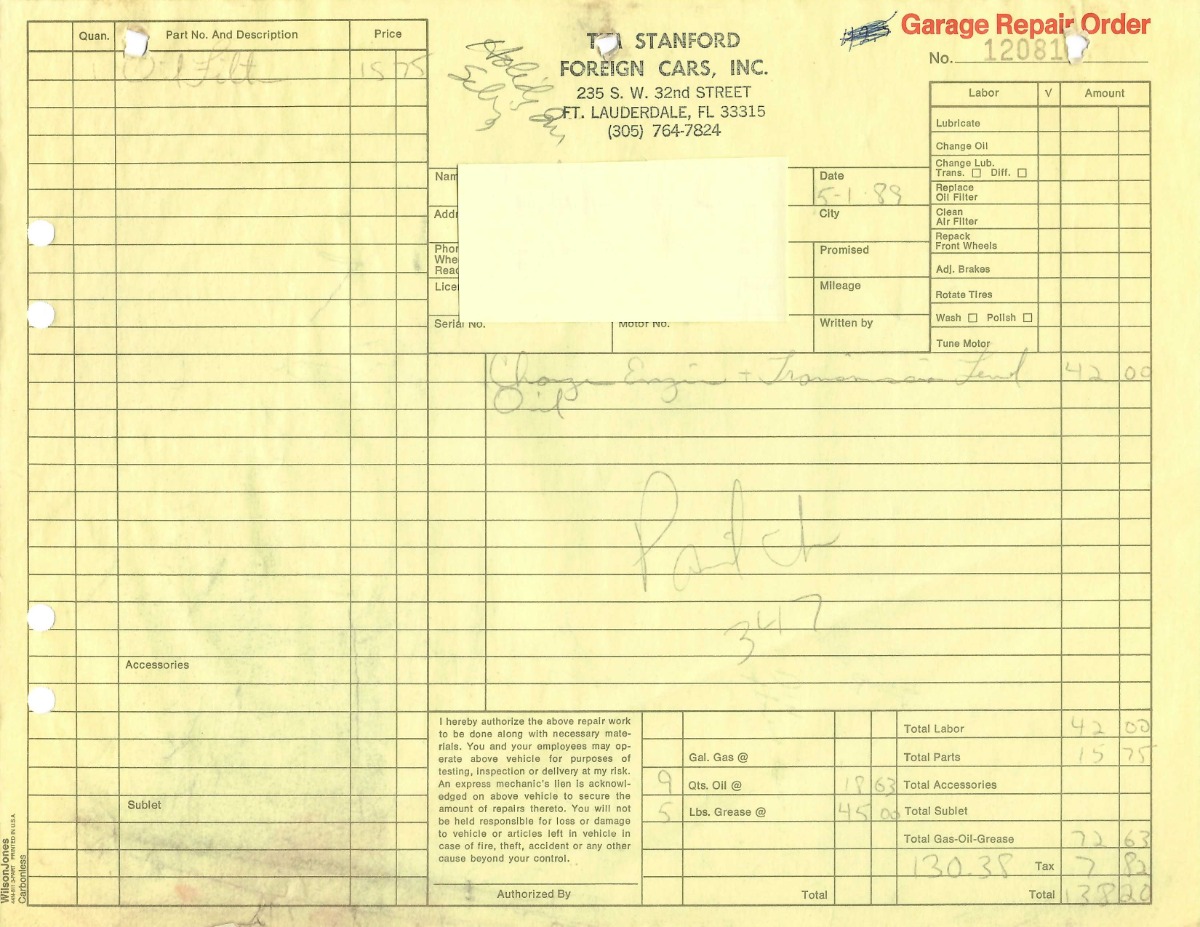 Quan. Part No. And Description Price
Oil Filt 15 75
Accessories
Sublet
WilsonJones
Carbonless
STANFORD
FOREIGN CARS, INC.
235 S. W. 32nd STREET
FT. LAUDERDALE, FL 33315
(305) 764-7824
Garage Repair Order
No. 12081
Date
5-1-89
City
Promised
Mileage
Serial No. Motor No. Written by
Labor √ Amount
Lubricate
Change Oil
Change Lub.
Trans. ☐ Diff. ☐
Replace
Oil Filter
Clean
Air Filter
Repack
Front Wheels
Adj. Brakes
Rotate Tires
Wash ☐ Polish ☐
Tune Motor
Change Engin + Transmission 42 00
Oil
Paid Ch
347
I hereby authorize the above repair work
to be done along with necessary mate-
rials. You and your employees may op-
erate above vehicle for purposes of
testing, inspection or delivery at my risk.
An express mechanic's lien is acknowl-
edged on above vehicle to secure the
amount of repairs thereto. You will not
be held responsible for loss or damage
to vehicle or articles left in vehicle in
case of fire, theft, accident or any other
cause beyond your control.
Authorized By
Gal. Gas @
9 Qts. Oil @ 18 63
5 Lbs. Grease @ 45 00
Total
Total Labor 42 00
Total Parts 15 75
Total Accessories
Total Sublet
Total Gas-Oil-Grease 72 63
130.38 Tax 7 82
Total 138 20